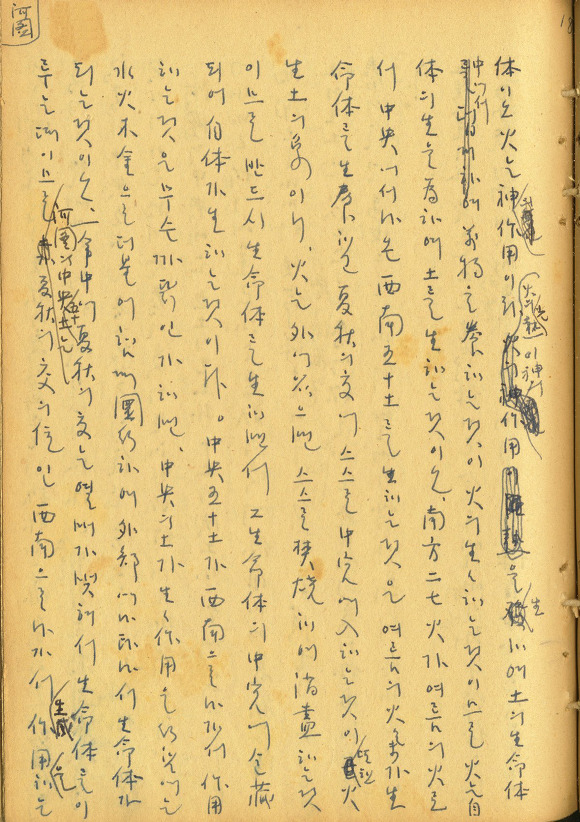 河圖
18
体이오 火는 神作用이라 火의 熱이 神作用을 生하야 土의 生命体
中에서 萬物을 養하는 것이 火의 生生하는 것이므로 火는 自
体의 生을 爲하야 土를 生하는 것이오, 南方二七火가 여름의 火로
서 中央에서 나온 西南五十土를 生하는 것은 여름의 火氣가 生
命体를 生養하고 夏秋의 交에 스스로 中宮에 入하는 것이 火
生土의 象이니, 火는 外에 있으면 스스로 燃燒하야 消盡하는 것
이므로 반드시 生命体를 生하면서 그 生命体의 中宮에 全藏
되어 自体가 生하는 것이다。中央五十土가 西南으로 나가서 作用
하는 것은 무슨 까닭인가 하면, 中央의 土가 生生作用을 行함에는
水火木金으로 더불어 하는 때 圖行하야 外部에 나타나서 生命体가
되는 것이오, 一年中에 夏秋의 交는 열매가 맺혀서 生命体를 이
루는 때이므로 河圖의 中央土는 夏秋의 交의 位인 西南으로 나가서 生成作用을 하는